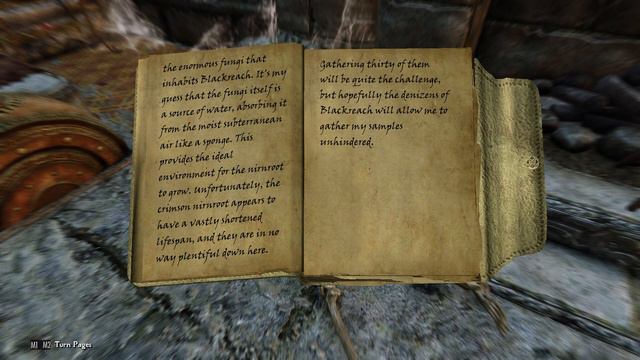 the enormous fungi that
inhabits Blackreach. It's my
guess that the fungi itself is
a source of water, absorbing it
from the moist subterranean
air like a sponge. This
provides the ideal
environment for the nirnroot
to grow. Unfortunately, the
crimson nirnroot appears to
have a vastly shortened
lifespan, and they are in no
way plentiful down here.
Gathering thirty of them
will be quite the challenge,
but hopefully the denizens of
Blackreach will allow me to
gather my samples
unhindered.
M1 M2 Turn Pages